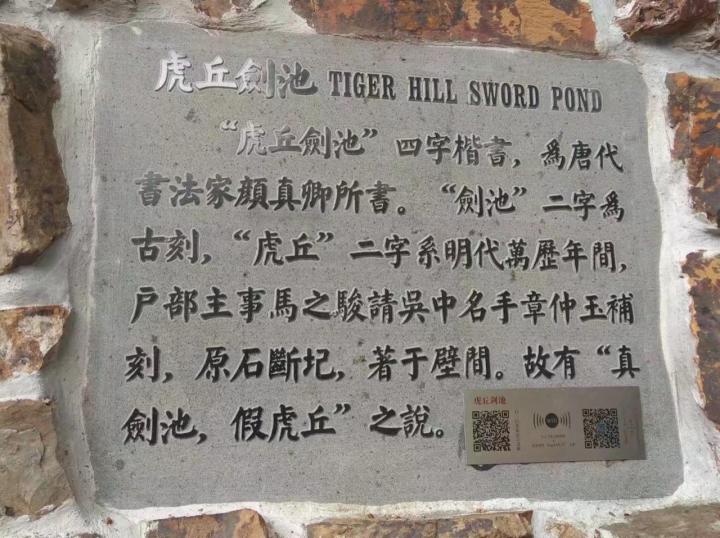 虎丘劍池 TIGER HILL SWORD POND
“虎丘劍池”四字楷書，爲唐代
書法家顏真卿所書。“劍池”二字爲
古刻，“虎丘”二字系明代萬歷年間，
戶部主事馬之駿請吳中名手章仲玉補
刻，原石斷圮，著于壁間。故有“真
劍池，假虎丘”之說。
虎丘剑池